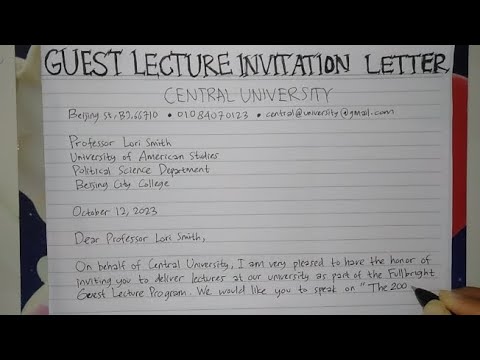 GUEST LECTURE INVITATION LETTER
CENTRAL UNIVERSITY
Beijing st, B9, 66710 • 01084070123 • central@university@gmail.com
Professor Lori Smith
University of American Studies
Political Science Department
Beijing City College
October 12, 2023
Dear Professor Lori Smith,
On behalf of Central University, I am very pleased to have the honor of
inviting you to deliver lectures at our university as part of the Fullbright
Guest Lecture Program. We would like you to speak on "The 200